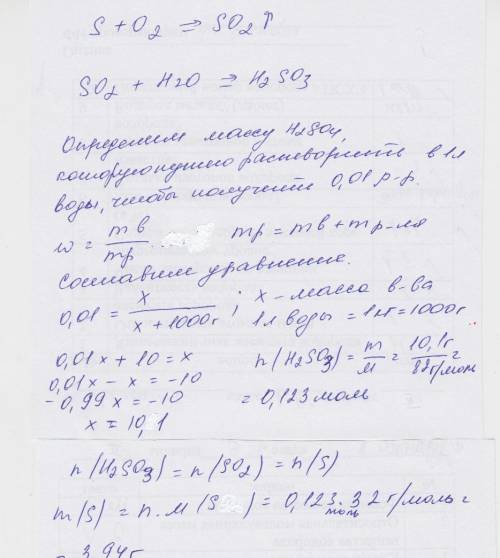 S + O2 ⇒ SO2↑
SO2 + H2O ⇒ H2SO3
Определим массу H2SO4,
которую нужно растворить в 1л
воды, чтобы получить 0,01 р-р.
w = mв/mр mр = mв + mр-ля
Составим уравнение.
0,01 = x/(x + 1000г); x – масса в-ва
1л воды = 1кг = 1000г
0,01x + 10 = x n(H2SO3) = m/M = 10,1г/82г/моль =
0,01x – x = –10
–0,99x = –10 = 0,123 моль
x = 10,1
n(H2SO3) = n(SO2) = n(S)
m(S) = n · M(S) = 0,123 моль · 32 г/моль =
= 3,94г